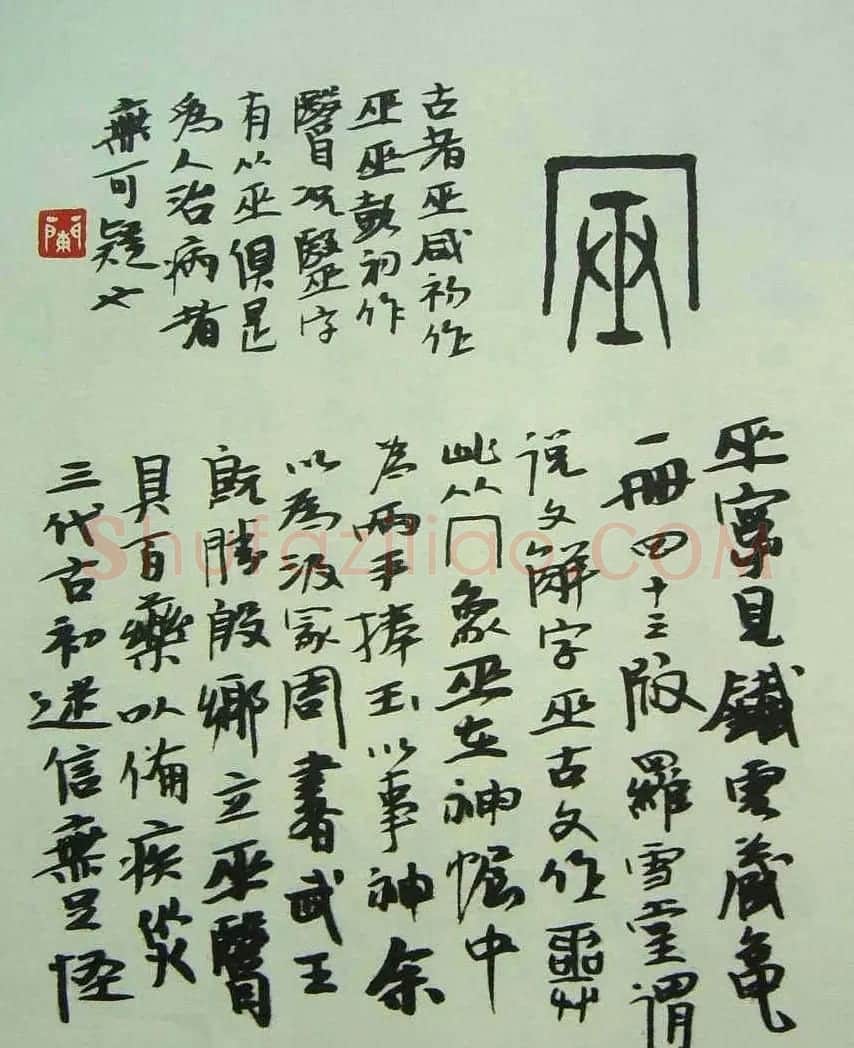 巫寫見鐵雲藏龜
一冊四十三版羅雪堂謂
说文解字巫古文作
此从冂象巫在神幄中
為兩手捧玉以事神余
以為汲冢周書武王
既勝殷鄉立巫醫
具百藥以備疾災
三代古初迷信無足怪
古者巫咸初作
巫巫彭初作
醫況毉字
有从巫俱是
為人治病者
無可疑也
蘭
Shufaziliao.COM